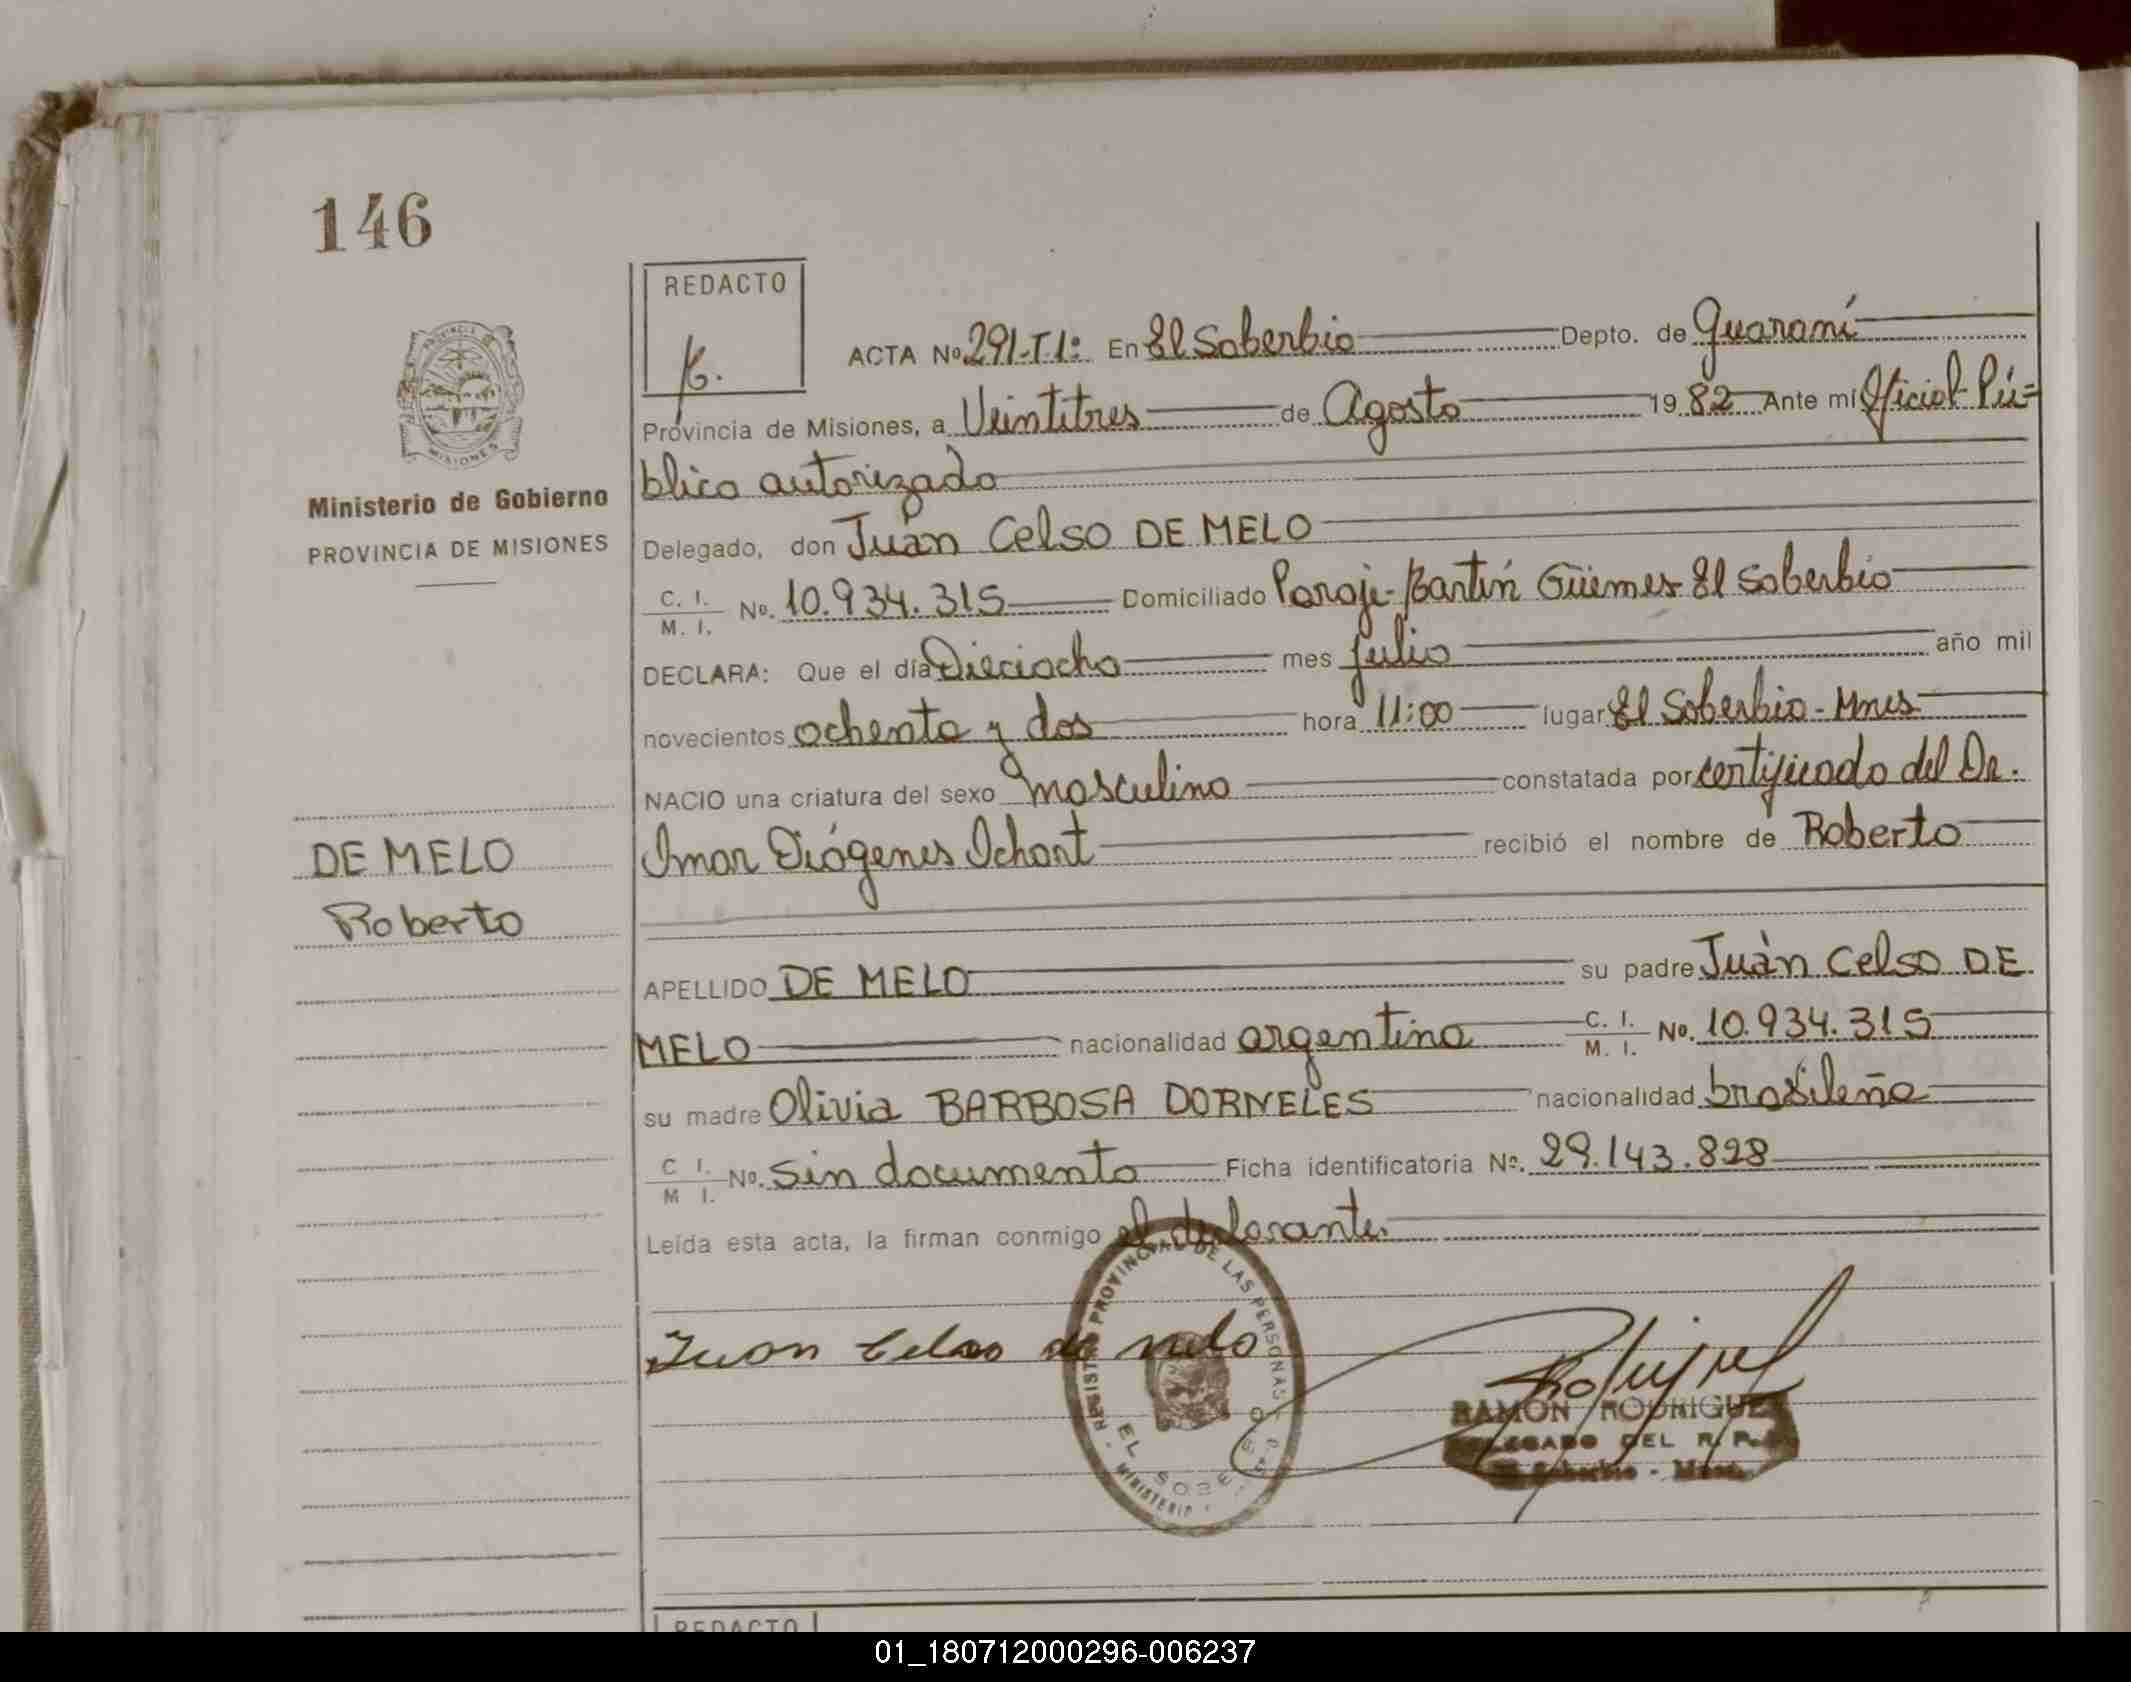 146
REDACTO
ACTA Nº 291-T.1º En El Soberbio Depto. de Guaraní
Provincia de Misiones, a Veintitres de Agosto 1982 Ante mí Oficial Pú=
blico autorizado
Ministerio de Gobierno
PROVINCIA DE MISIONES
Delegado, don Juan Celso DE MELO
C. I.
M. I. No. 10.934.315 Domiciliado Paraje Martín Güemes-El Soberbio
DECLARA: Que el día Dieciocho mes Julio año mil
novecientos ochenta y dos hora 11:00 lugar El Soberbio-Mnes
NACIO una criatura del sexo masculino constatada por certificado del Dr.
DE MELO
Omar Diógenes Ichart recibió el nombre de Roberto
Roberto
APELLIDO DE MELO su padre Juàn Celso DE
MELO nacionalidad argentina C. I.
M. I. No. 10.934.315
su madre Olivia BARBOSA DORNELES nacionalidad brasileña
C I.
M I. No. Sin documento Ficha identificatoria Nº. 29.143.828
Leída esta acta, la firman conmigo el declarante.
Juan Celso de melo
REGISTRO PROVINCIAL DE LAS PERSONAS
EL SOBERBIO
MINISTERIO
RAMON RODRIGUEZ
DELEGADO DEL R. P.
El Soberbio - Mnes.
REDACTO
01_180712000296-006237